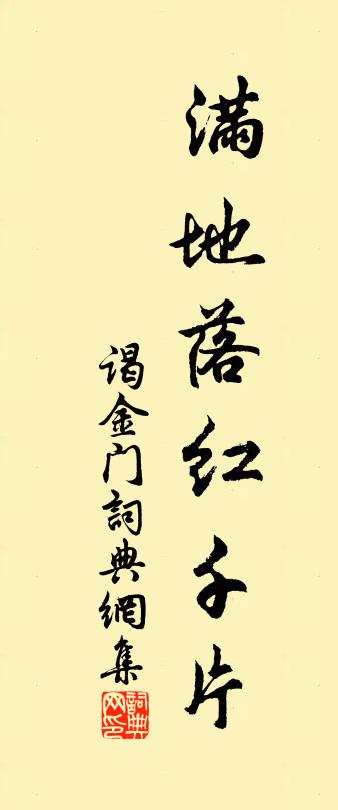 满地落红千片
谒金门詞典網集
詞典网印